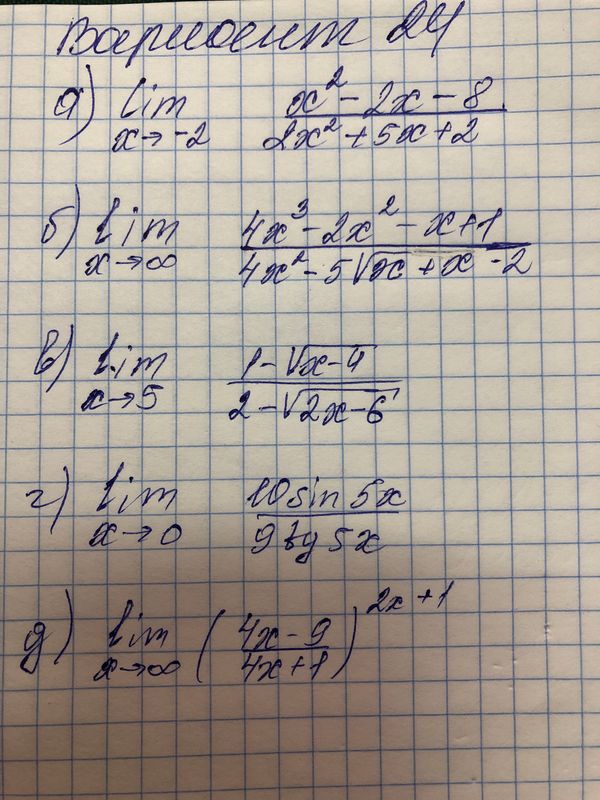 Вариант 24
а) lim x→-2 (x² - 2x - 8)/(2x² + 5x + 2)
б) lim x→∞ (4x³ - 2x² - x + 1)/(4x² - 5√x + x - 2)
в) lim x→5 (1 - √(x-4))/(2 - √(2x-6))
г) lim x→0 (10 sin 5x)/(9 tg 5x)
д) lim x→∞ ((4x - 9)/(4x + 1))^(2x+1)